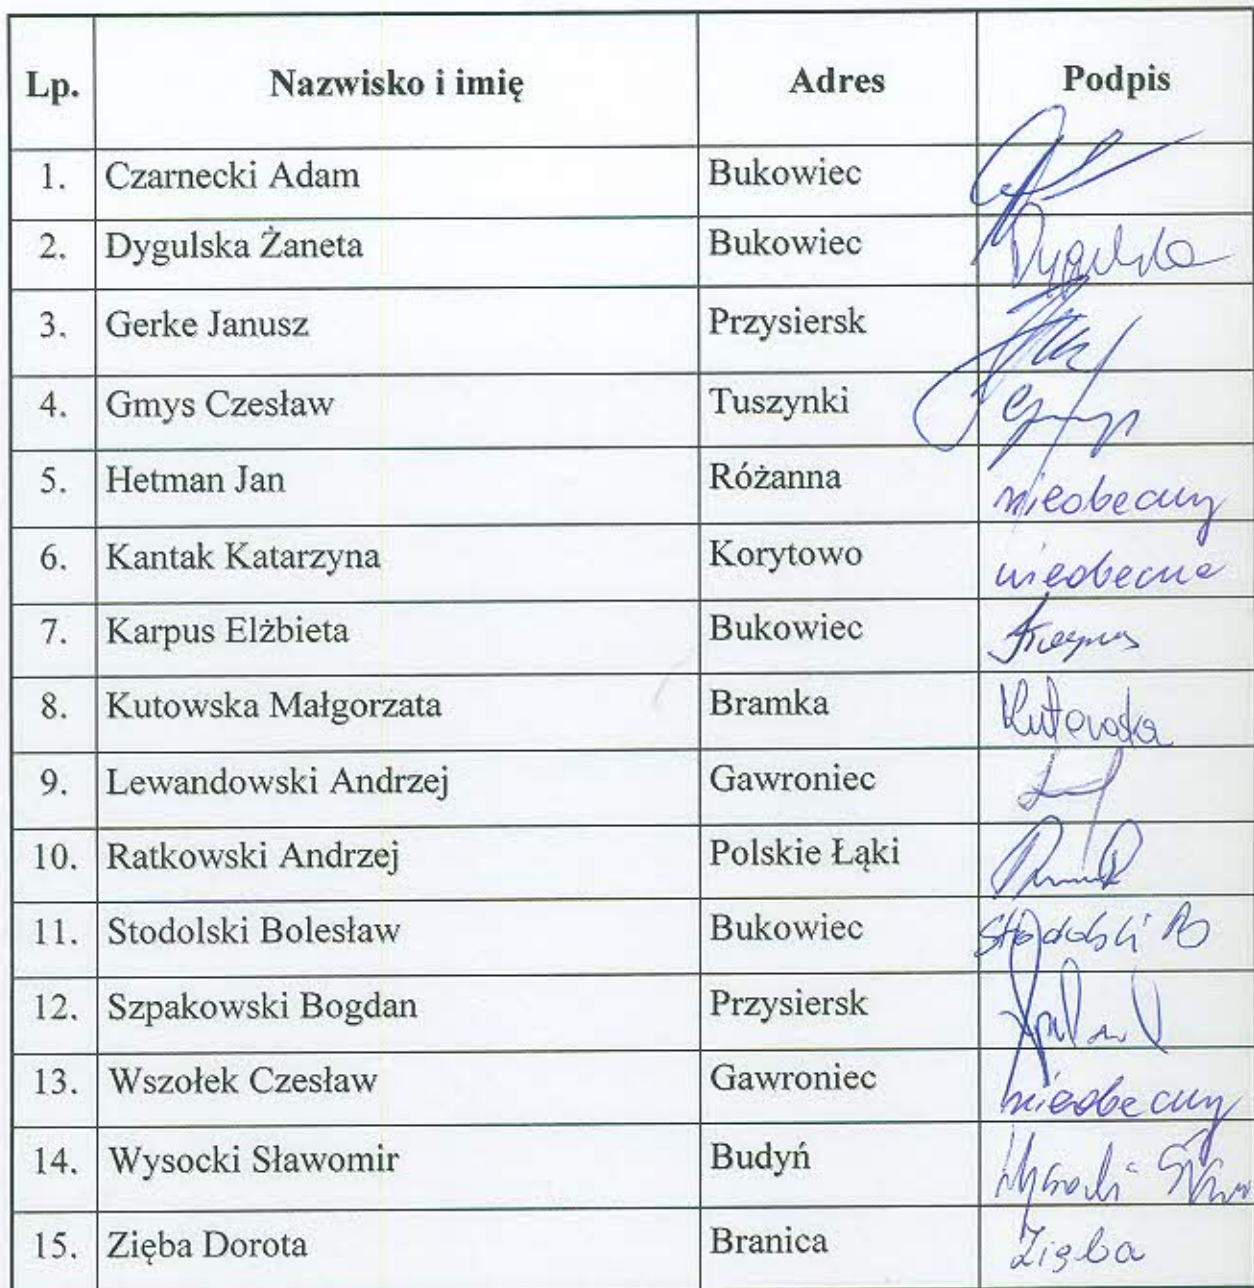 Lp. Nazwisko i imię Adres Podpis
1. Czarnecki Adam Bukowiec
2. Dygulska Żaneta Bukowiec Dygulska
3. Gerke Janusz Przysiersk
4. Gmys Czesław Tuszynki Gmys
5. Hetman Jan Różanna nieobecny
6. Kantak Katarzyna Korytowo nieobecna
7. Karpus Elżbieta Bukowiec Karpus
8. Kutowska Małgorzata Bramka Kutowska
9. Lewandowski Andrzej Gawroniec
10. Ratkowski Andrzej Polskie Łąki
11. Stodolski Bolesław Bukowiec Stodolski B
12. Szpakowski Bogdan Przysiersk
13. Wszołek Czesław Gawroniec nieobecny
14. Wysocki Sławomir Budyń Wysocki
15. Zięba Dorota Branica Zięba